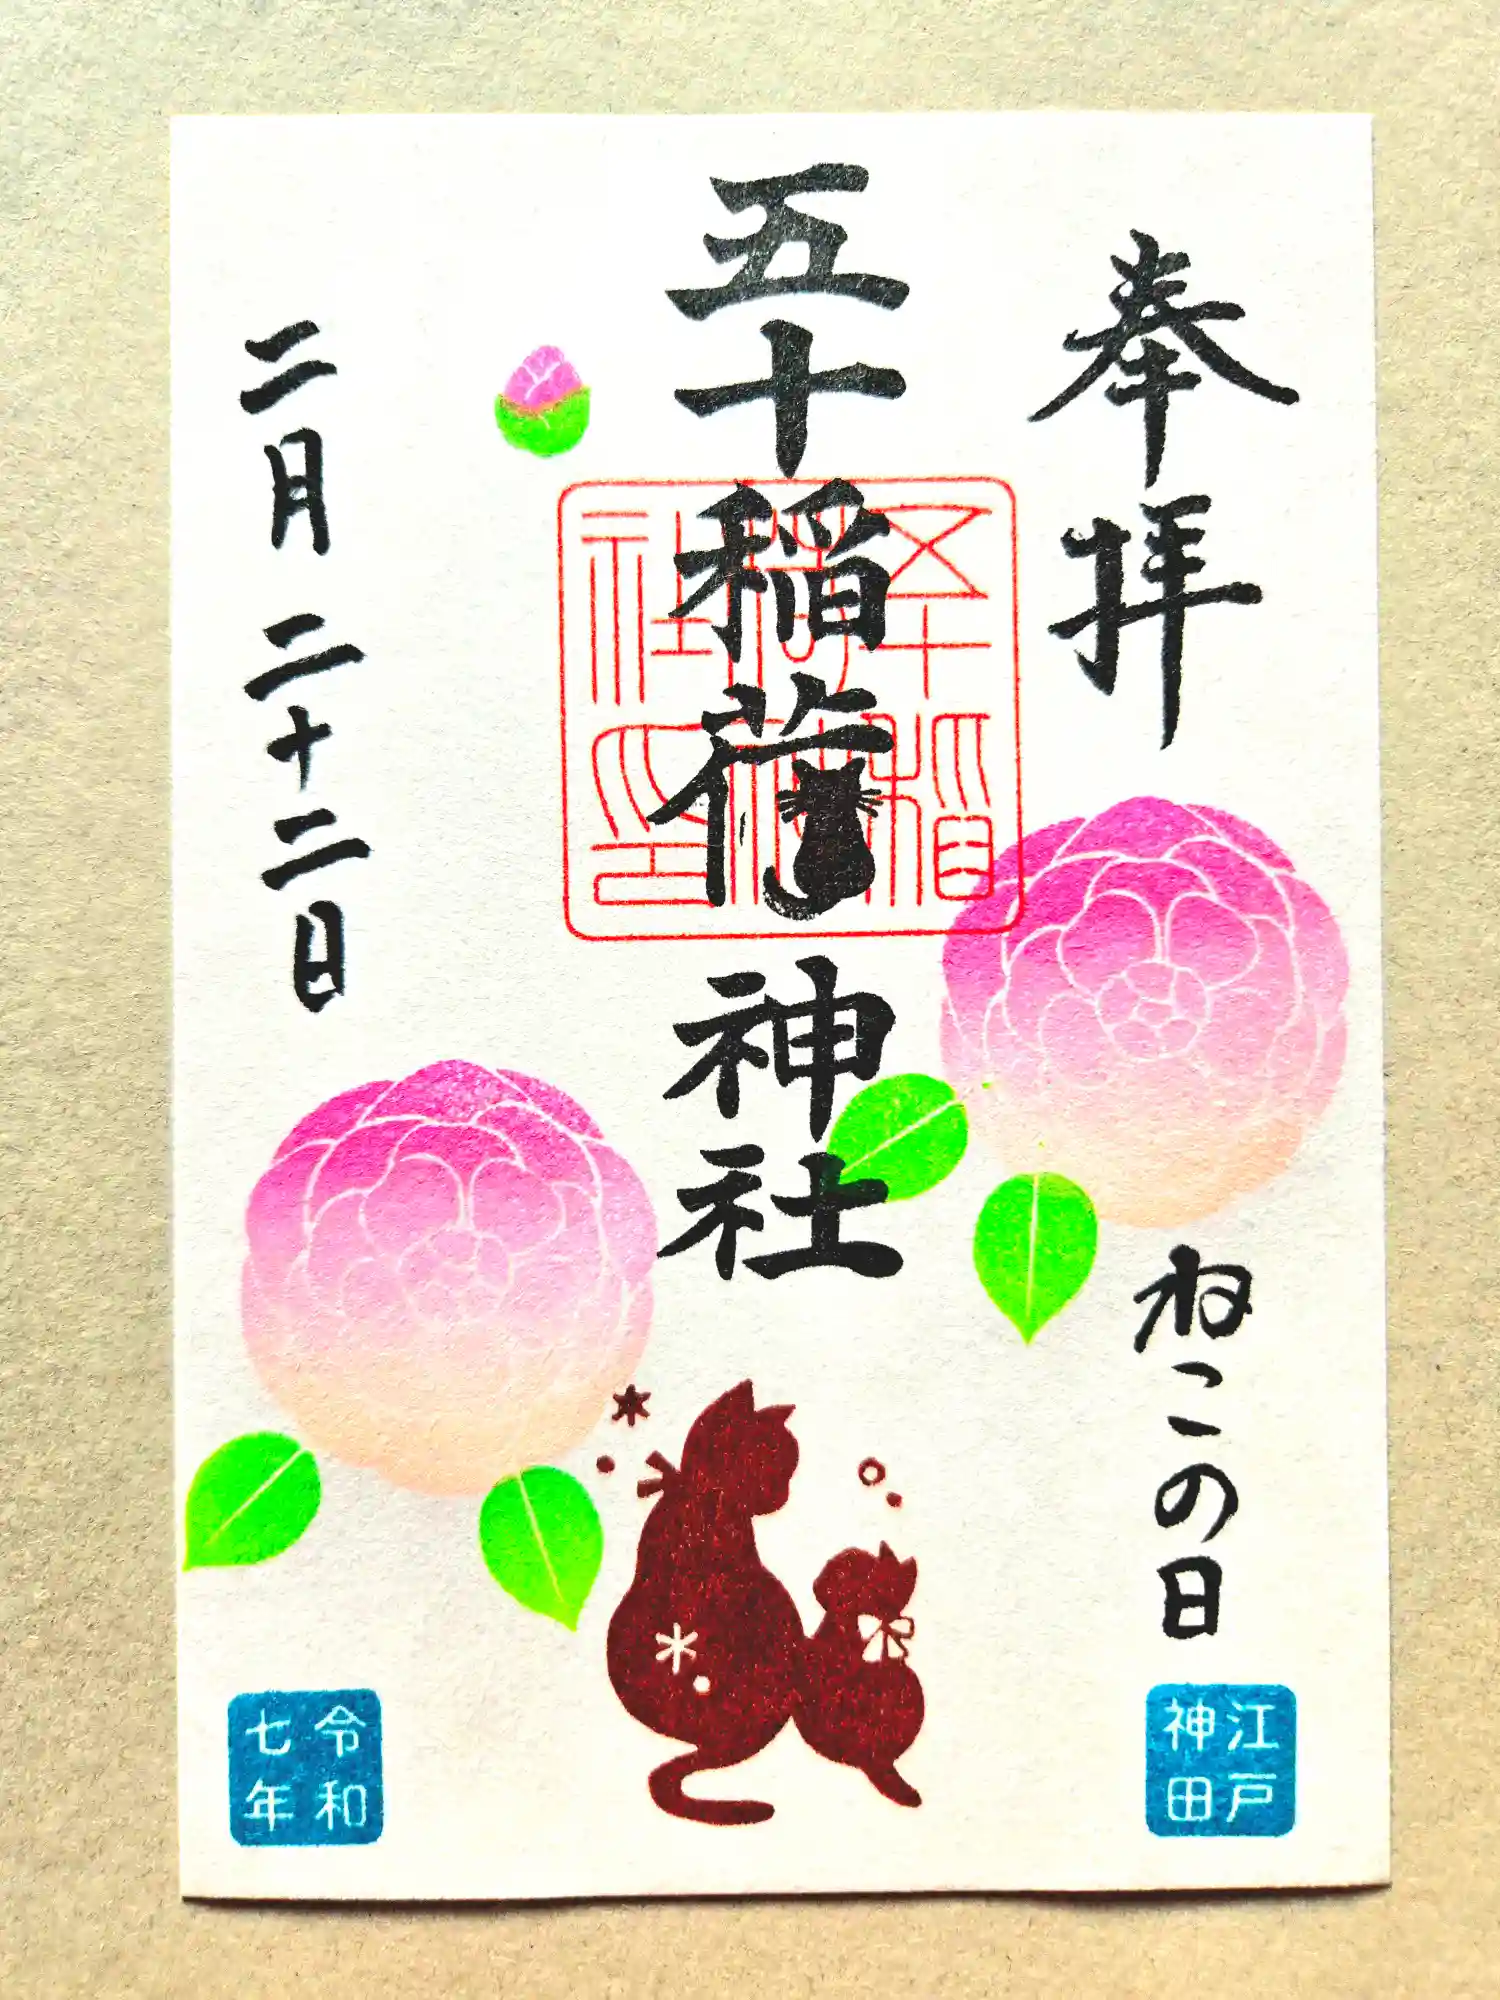 奉拝
ねこの日
江戸
神田
五十稲荷神社
五十稲
荷神
社印
二月二十二日
令和
七年